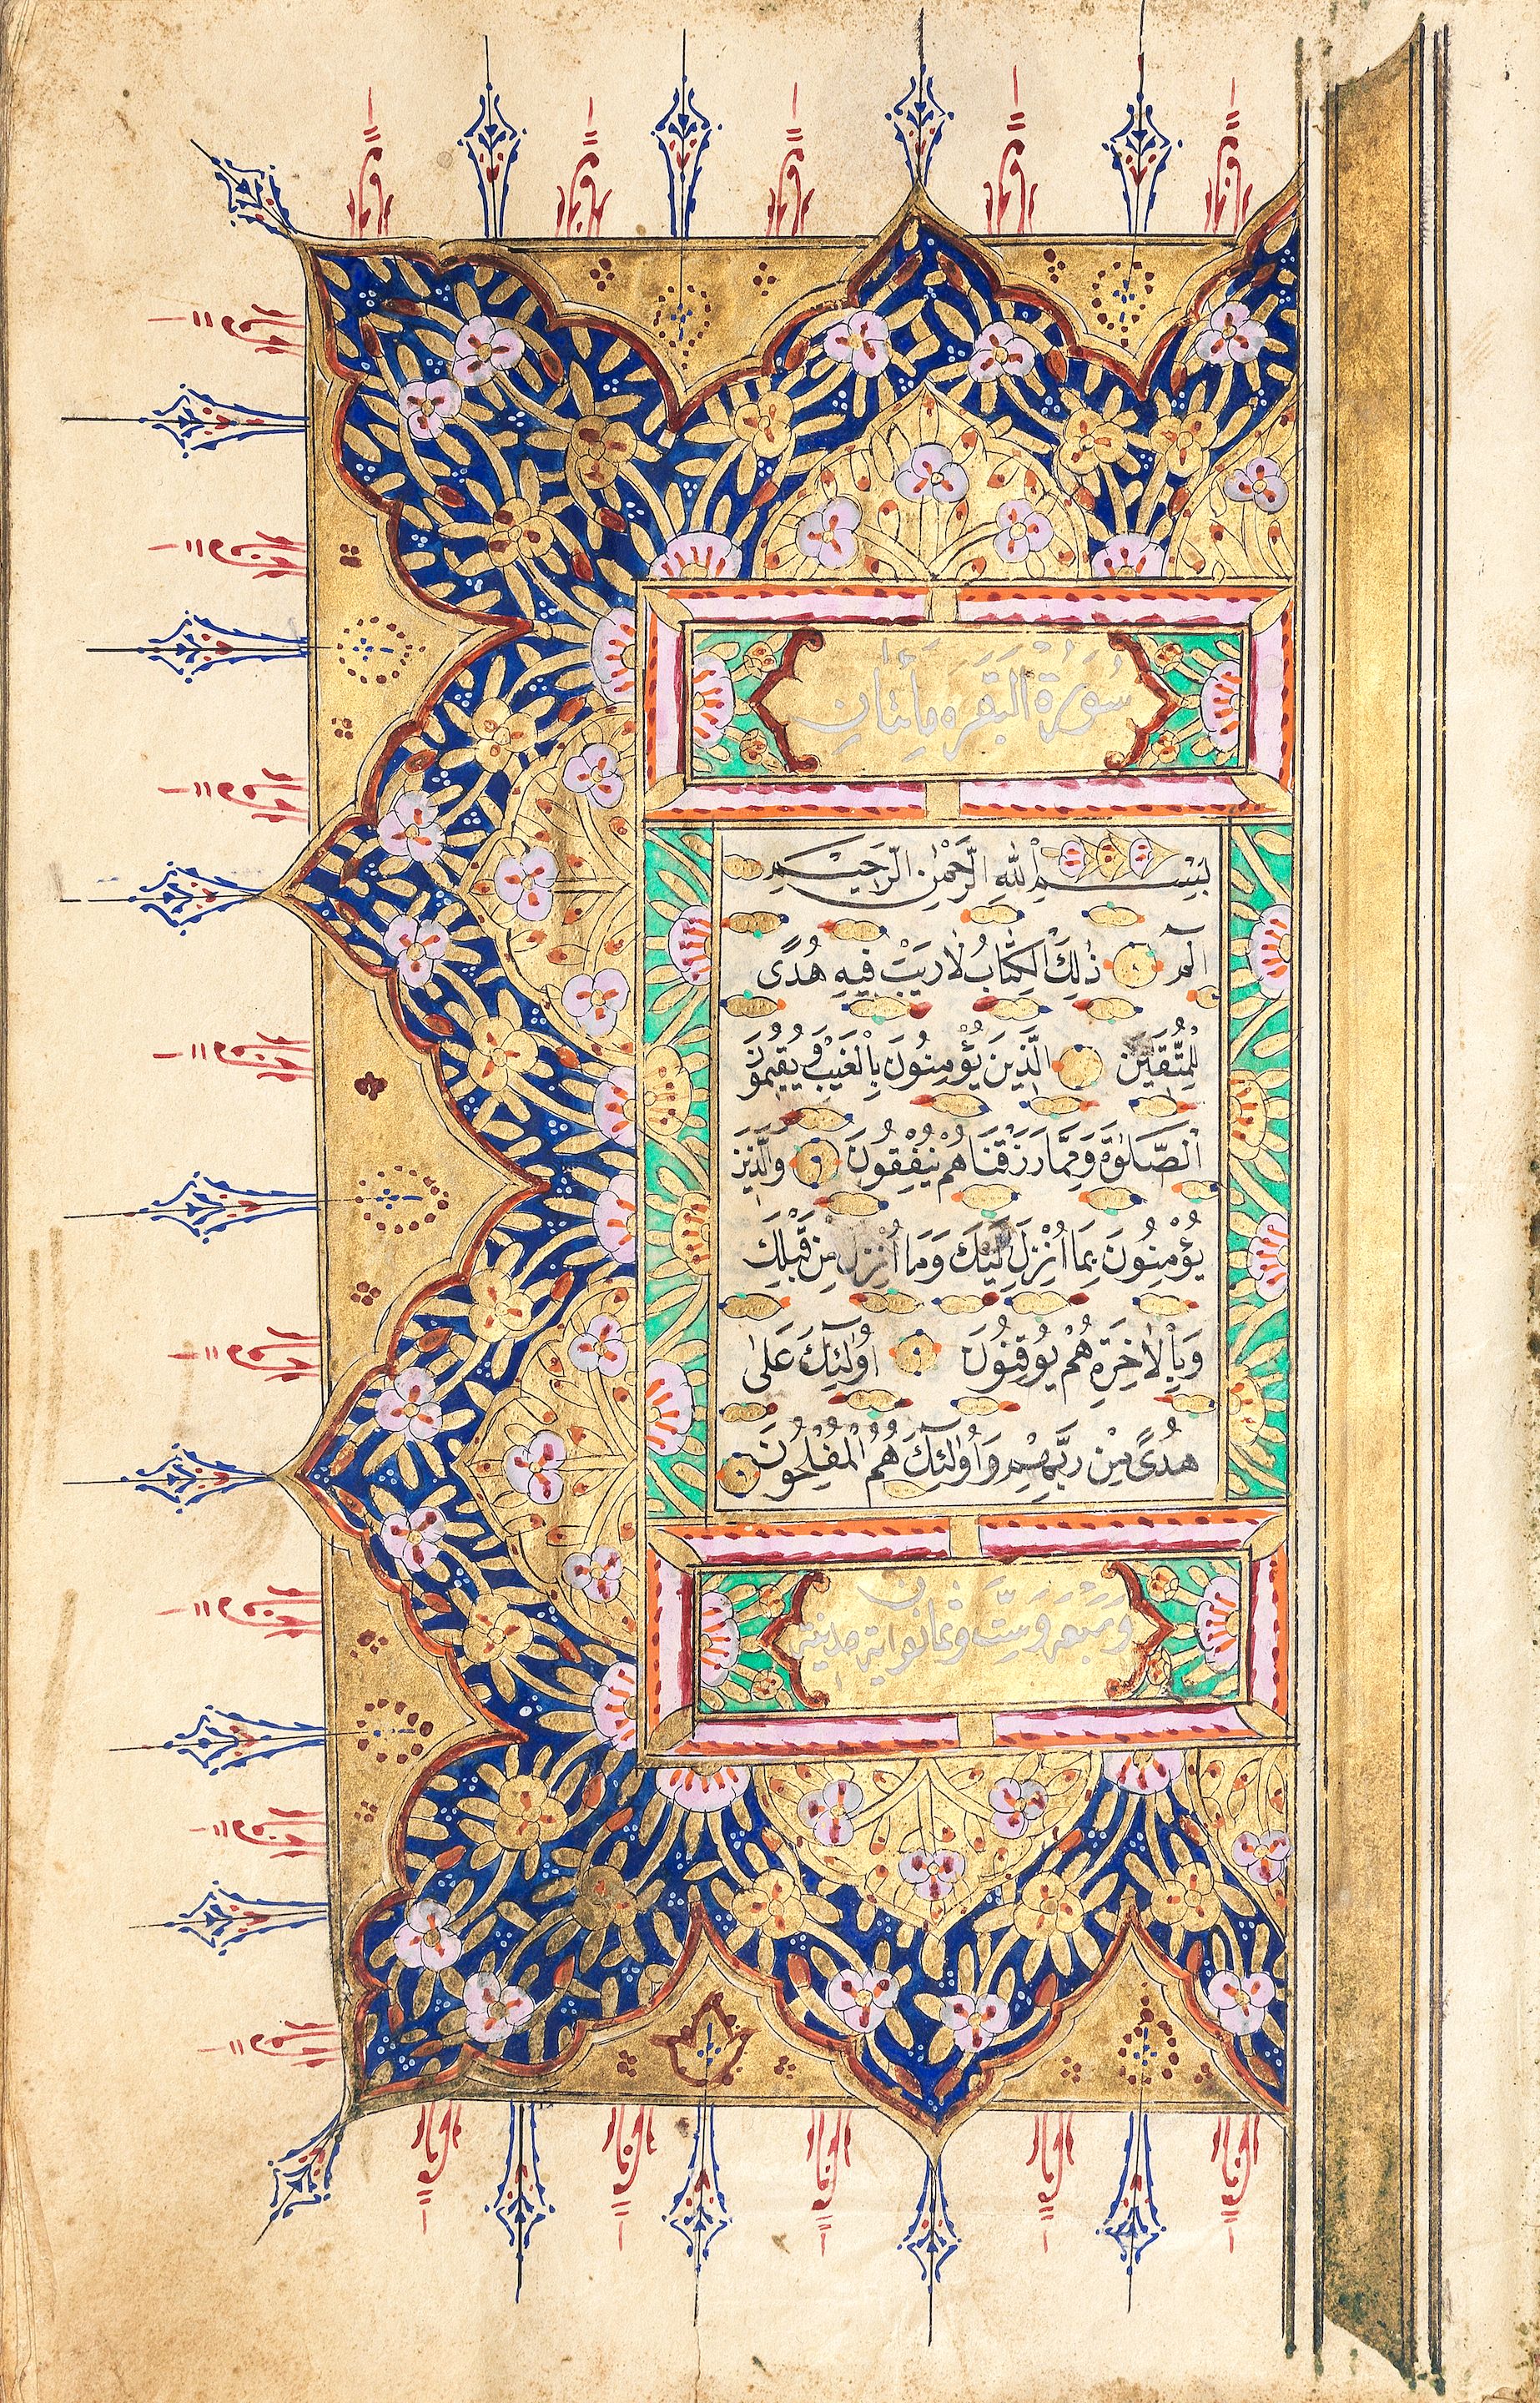 سُورَةُ البقره مِائتَانِ
بِسْمِ اللّٰهِ الرَّحْمٰنِ الرَّحِيمِ
الٓمٓ ذٰلِكَ الْكِتَابُ لَا رَيْبَ فِيهِ هُدًى
لِلْمُتَّقِينَ الَّذِينَ يُؤْمِنُونَ بِالْغَيْبِ وَيُقِيمُونَ
الصَّلٰوةَ وَمِمَّا رَزَقْنَاهُمْ يُنْفِقُونَ وَالَّذِينَ
يُؤْمِنُونَ بِمَا اُنْزِلَ لَيْكَ وَمَا اُنْزِلَ مِنْ قَبْلِكَ
وَبِالْاٰخِرَةِ هُمْ يُوقِنُونَ اُولٰٓئِكَ عَلٰى
هُدًى مِنْ رَبِّهِمْ وَاُولٰٓئِكَ هُمُ الْمُفْلِحُونَ
وَسِتّ وثمانون اية مدنية